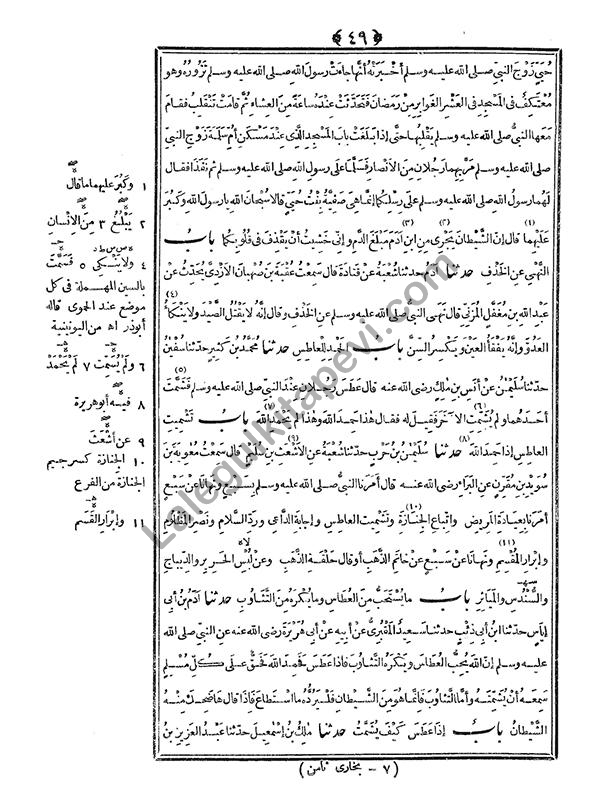 ﴿٤٩﴾
حُيَيٍّ زَوْجَ النبيّ صلى الله عليه وسلم أخْبَرَتْهُ أنَّها جاءَتْ رسولَ اللهِ صلى الله عليه وسلم تَزُورُهُ وهو
مُعْتَكِفٌ في المَسْجِدِ في العَشْرِ الغَوابِرِ مِنْ رمَضانَ فَتَحَدَّثَتْ عِنْدَهُ ساعَةً مِنَ العِشاءِ ثُمَّ قامَتْ تَنْقَلِبُ فقام
مَعَها النبيُّ صلى الله عليه وسلم يَقْلِبُها حتَّى إذا بَلَغَتْ بابَ المَسْجِدِ الَّذِي عِنْدَ مَسْكَنِ أمِّ سَلَمَةَ زَوْجِ النبيّ
صلى الله عليه وسلم مَرَّ بِهِما رجُلانِ مِنَ الأنْصارِ فَسَلَّما على رسولِ الله صلى الله عليه وسلم ثم نَفَذا فقال
لَهُما رسولُ اللهِ صلى الله عليه وسلم على رِسْلِكُما إنَّما هي صَفِيَّةُ بِنْتُ حُيَيٍّ قالا سُبْحانَ اللهِ يا رسولَ اللهِ وكَبُرَ
عَلَيْهِما (١) قال إنَّ الشَّيْطانَ يَجْرِي (٢) مِنِ ابنِ (٣) آدَمَ مَبْلَغَ الدَّمِ وإنّي خَشِيتُ أنْ يَقْذِفَ في قُلُوبِكُما باب
النَّهْيِ عنِ الخَذْفِ حدثنا آدَمُ حدثنا شُعْبَةُ عنْ قتادَةَ قال سَمِعْتُ عُقْبَةَ بن صُهْبانَ الأزْدِيَّ يُحَدِّثُ عنْ
عبدِ اللهِ بنِ مُغَفَّلٍ المُزَنِيّ قال نَهَى النبيُّ صلى الله عليه وسلم عنِ الخَذْفِ وقال إنَّهُ لا يَقْتُلُ الصَّيْدَ ولا يَنْكَأُ (٤)
العَدُوَّ وإنَّه يَفْقَأُ العَيْنَ ويَكْسِرُ السِّنَّ باب الحَمْدِ للعاطِسِ حدثنا مُحَمَّدُ بن كَثِيرٍ حدّثنا سُفْيٰنُ
حدّثنا سُلَيْمٰنُ عنْ أنَسِ بن مٰلِكٍ رضى الله عنه قال عَطَسَ رجُلانِ عِنْدَ النبيّ صلى الله عليه وسلم فَشَمَّتَ (٥)
أحدَهُما ولم يُشَمِّتِ (٦) الآخَرَ فَقِيلَ له فقال هٰذا حَمِدَ اللهَ وهٰذا لم يَحْمَدِ (٧) اللهَ باب تَشْمِيتِ
العاطِسِ إذا حَمِدَ اللهَ (٨) حدثنا سُلَيْمٰنُ بنُ حَرْبٍ حدّثنا شُعْبَةُ عنِ (٩) الأشْعَثِ بنِ سُلَيْمٍ قال سَمِعْتُ مُعٰوِيَةَ بن
سُوَيْدِ بنِ مُقَرِّنٍ عنِ البَراءِ رضى الله عنه قال أمَرَنا النبيُّ صلى الله عليه وسلم بِسَبْعٍ ونَهانا عنْ سَبْعٍ
أمرَنا بِعِيادَةِ المَرِيضِ واتِّباعِ الجِنازَةِ (١٠) وتَشْمِيتِ العاطِسِ وإجابَةِ الدَّاعِي ورَدِّ السَّلامِ ونَصْرِ المَظْلُومِ
وإبْرارِ المُقْسِمِ (١١) ونَهانا عنْ سَبْعٍ عنْ خاتَمِ الذَّهَبِ أو قال حَلْقَةِ الذَّهَبِ وعنْ لُبْسِ الحَرِيرِ والدِّيباجِ
والسُّنْدُسِ والمَياثِرِ باب ما يُسْتَحَبُّ مِنَ العُطاسِ وما يُكْرَهُ مِنَ التَّثاؤُبِ حدثنا آدَمُ بنُ أبي
إياسٍ حدّثنا ابنُ أبي ذِئْبٍ حدّثنا سَعِيدٌ المَقْبُرِيُّ عنْ أبِيهِ عنْ أبي هُرَيْرَةَ رضى الله عنه عنِ النبيّ صلى الله
عليه وسلم إنَّ اللهَ يُحِبُّ العُطاسَ ويَكْرَهُ التَّثاؤُبَ فإذا عَطَسَ فَحَمِدَ اللهَ فَحَقٌّ على كُلِّ مُسْلِمٍ
سَمِعَهُ أنْ يُشَمِّتَهُ وأمَّا التَّثاؤُبُ فإنَّما هو مِنَ الشَّيْطانِ فَلْيَرُدَّهُ ما اسْتَطاعَ فإذا قال ها ضَحِكَ مِنْهُ
الشَّيْطانُ باب إذا عَطَسَ كَيْفَ يُشَمَّتُ حدثنا مٰلِكُ بن إسْمٰعِيلَ حدّثنا عَبْدُ العَزِيزِ بن
(٧ - بخارى ثامن)
١ وكَبُرَ عليهما ما قال
٢ يَبْلُغُ ٣ مِنَ الإنْسانِ
٤ ولا يَنْكِي ٥ فَسَمَّتَ
بالسين المهملة في كل
موضع عند الحموى قاله
أبوذر اه من اليونينية
٦ ولم يُسَمِّتْ ٧ لم يَحْمَدْ
٨ فيه أبوهريرة
٩ عن أشْعَثَ
١٠ الجنازة كسرجيم
الجنازة من الفرع
١١ وإبْرارِ القَسَمِ
Lalegulkitapevi.com